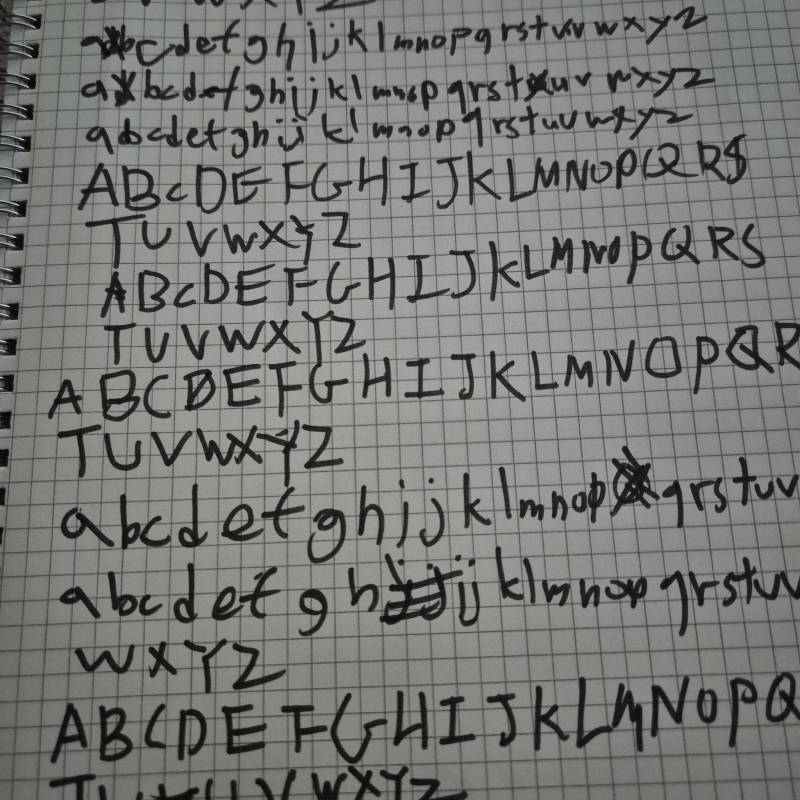 abcdefghijklmnopqrstuvwxyz
abcdefghijklmnopqrstuvwxyz
abcdefghijklmnopqrstuvwxyz
ABCDEFGHIJKLMNOPQRS
TUVWXYZ
ABCDEFGHIJKLMNOPQRS
TUVWXYZ
ABCDEFGHIJKLMNOPQR
TUVWXYZ
abcdefghijklmnopqrstuv
abcdefghijklmnopqrstuv
WXYZ
ABCDEFGHIJKLMNOPQ
TUVWXYZ